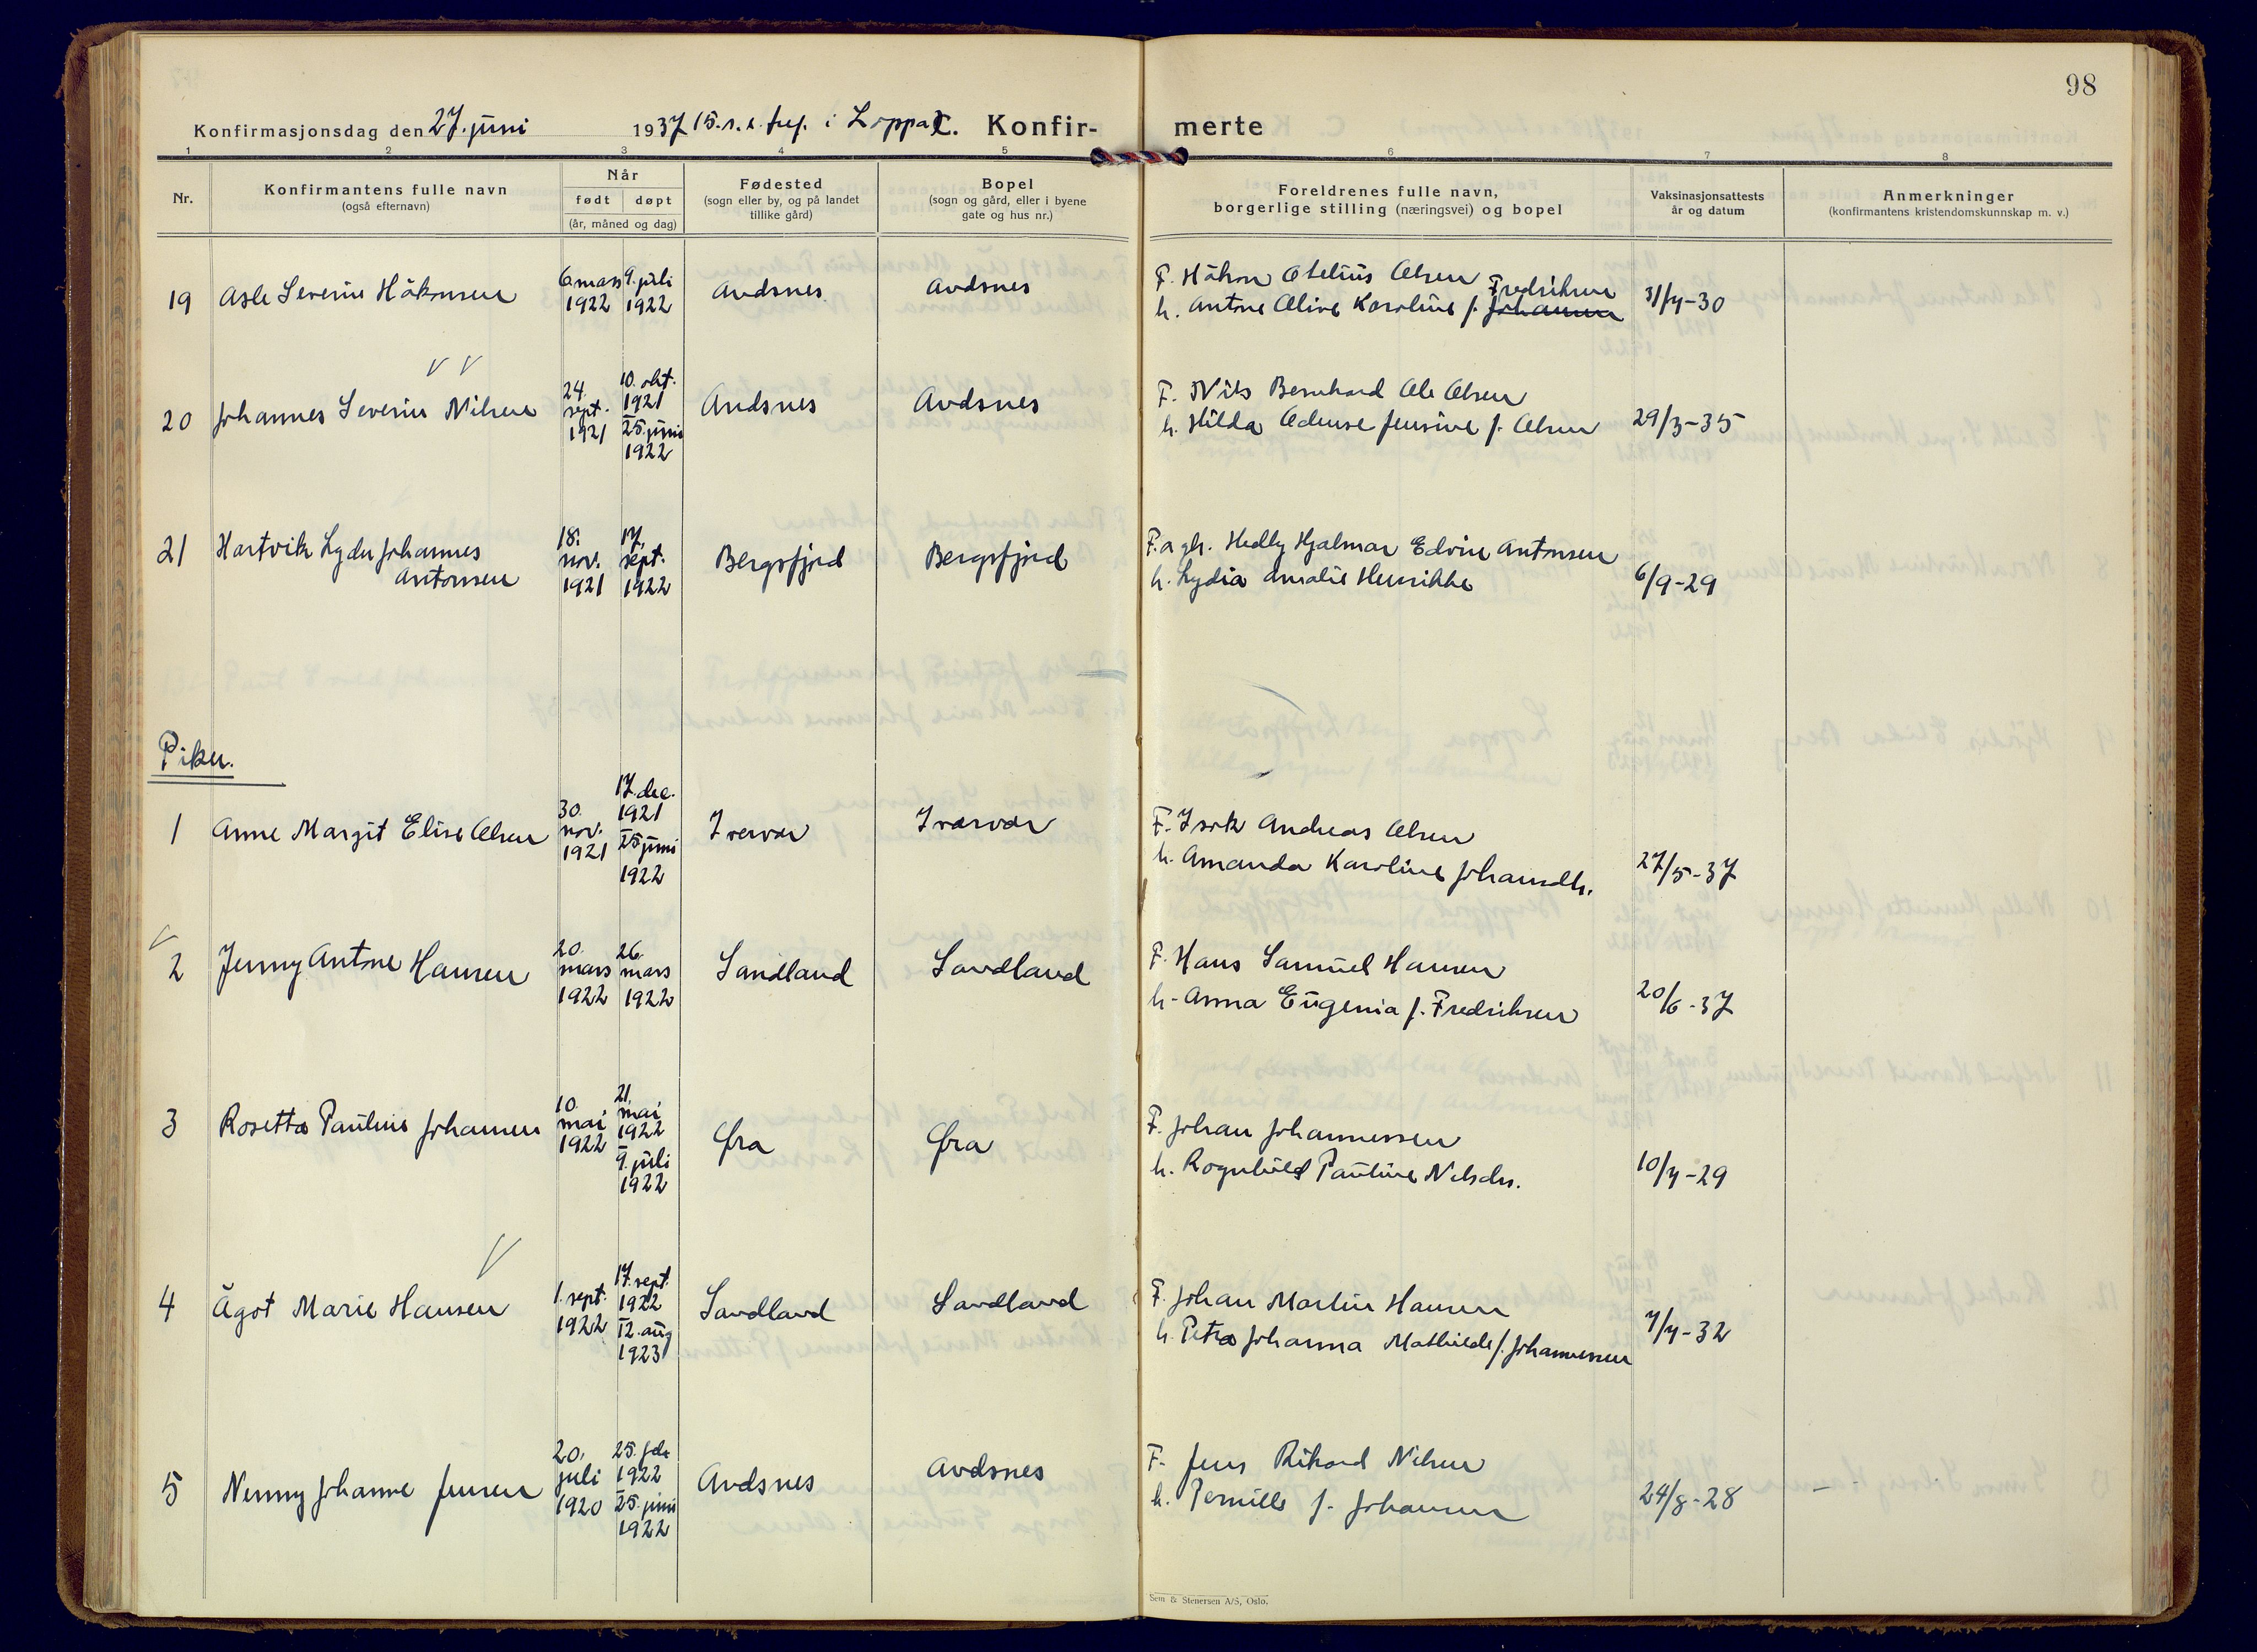 98
Konfirmasjonsdag den 27. juni 1937 i Loppa C. Konfir- merte
1 2 3 4 5 6 7 8
Nr.
Konfirmantens fulle navn
(også efternavn)
Når
født døpt
(år, måned og dag)
Fødested
(sogn eller by, og på landet
tillike gård)
Bopel
(sogn og gård, eller i byene
gate og hus nr.)
Foreldrenes fulle navn,
borgerlige stilling (næringsvei) og bopel
Vaksinasjonsattests
år og datum
Anmerkninger
(konfirmantens kristendomskunnskap m. v.)
19 Asle Severin Håkonsen
6 mars
1922
9. juli
1922
Andsnes
Andsnes
F. Håkon Otelius Olsen
h. Antone Olive Karoline f. Johansen Fredriksen
31/4-30
20 Johannes Severin Nilsen
24.
sept.
1921
10. okt.
1921
25. juni
1922
Andsnes
Andsnes
F. Nils Bernhard Ole Olsen
h. Hilda Odense Jensine f. Olsen
29/3-35
21 Hartvik Lyder Johannes
Antonsen
18.
nov.
1921
17.
sept.
1922
Bergsfjord
Bergsfjord
F. Hedley Hjalmar Edvin Antonsen
h. Lydia Amalie Henrikke
6/9-29
Piker.
1 Anne Margit Elise Olsen
30.
nov.
1921
17. dec.
1921
25 juni
1922
Iverver
Ivarvær
F. Isak Andreas Olsen
h. Amanda Karoline Johansdtr.
27/5-37
2 Jenny Antone Hansen
20.
mars
1922
26.
mars
1922
Sandland
Sandland
F. Hans Samuel Hansen
h. Anna Eugenia f. Fredriksen
20/6-37
3 Rosetta Pauline Johansen
10.
mai
1922
21.
mai
1922
9. juli
1922
Øra
Øra
F. Johan Johannessen
h. Ragnhild Pauline Nilsdtr.
10/4-29
4 Ågot Marie Hansen
1. sept.
1922
17. sept.
1922
12. aug
1923
Sandland
Sandland
F. Johan Martin Hansen
h. Petra Johanna Mathilde f. Johannessen
4/4-32
5 Nenny Johanne Jensen
20.
juli
1920
25. feb.
1922
25. juni
1922
Andsnes
Andsnes
F. Jens Rikard Nilsen
h. Pernille f. Johansen
24/8-28
Sem & Stenersen A/S, Oslo.